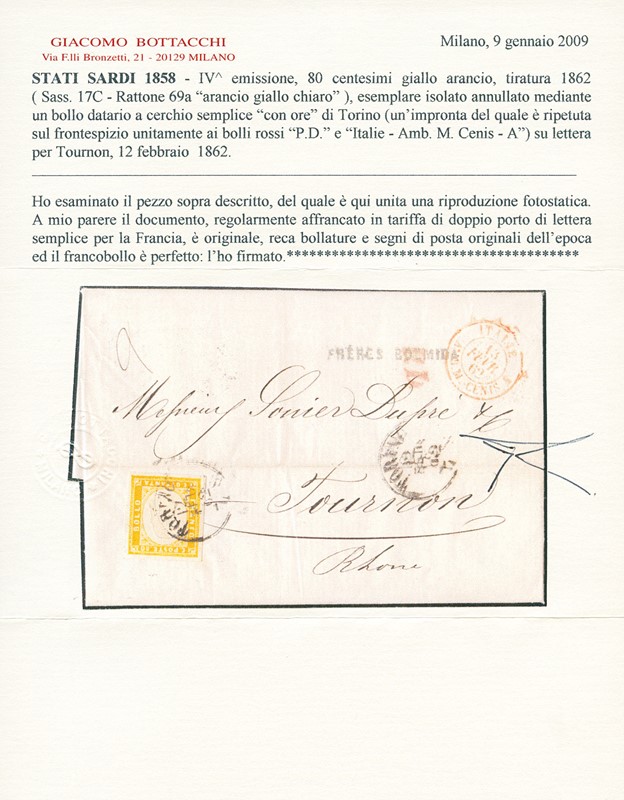 GIACOMO BOTTACCHI
Via F.lli Bronzetti, 21 - 20129 MILANO
Milano, 9 gennaio 2009
STATI SARDI 1858 - IV^ emissione, 80 centesimi giallo arancio, tiratura 1862
( Sass. 17C - Rattone 69a “arancio giallo chiaro” ), esemplare isolato annullato mediante
un bollo datario a cerchio semplice “con ore” di Torino (un’impronta del quale è ripetuta
sul frontespizio unitamente ai bolli rossi “P.D.” e “Italie - Amb. M. Cenis - A”) su lettera
per Tournon, 12 febbraio 1862.
Ho esaminato il pezzo sopra descritto, del quale è qui unita una riproduzione fotostatica.
A mio parere il documento, regolarmente affrancato in tariffa di doppio porto di lettera
semplice per la Francia, è originale, reca bollature e segni di posta originali dell’epoca
ed il francobollo è perfetto: l’ho firmato.***************************************
ITALIE
13
FEVR
62
M. CENIS A
FRÈRES BORMIDA
Messieurs Sonier Dupré &
Tournon
Rhone
BOLLO